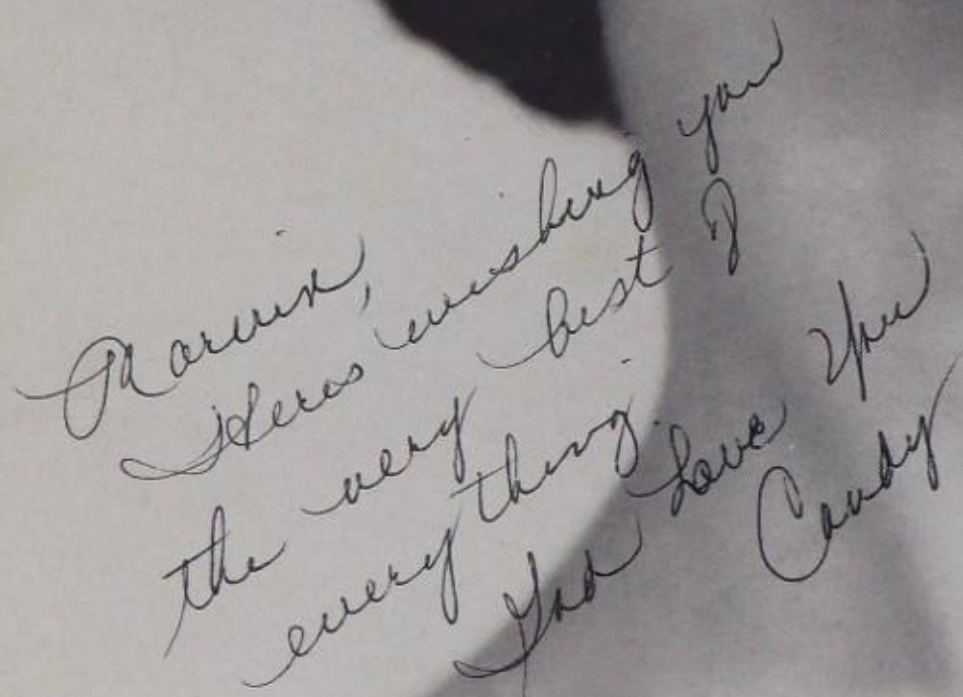 Marvin,
Heres wishing you
the very best of
every thing.
God Love You
Candy